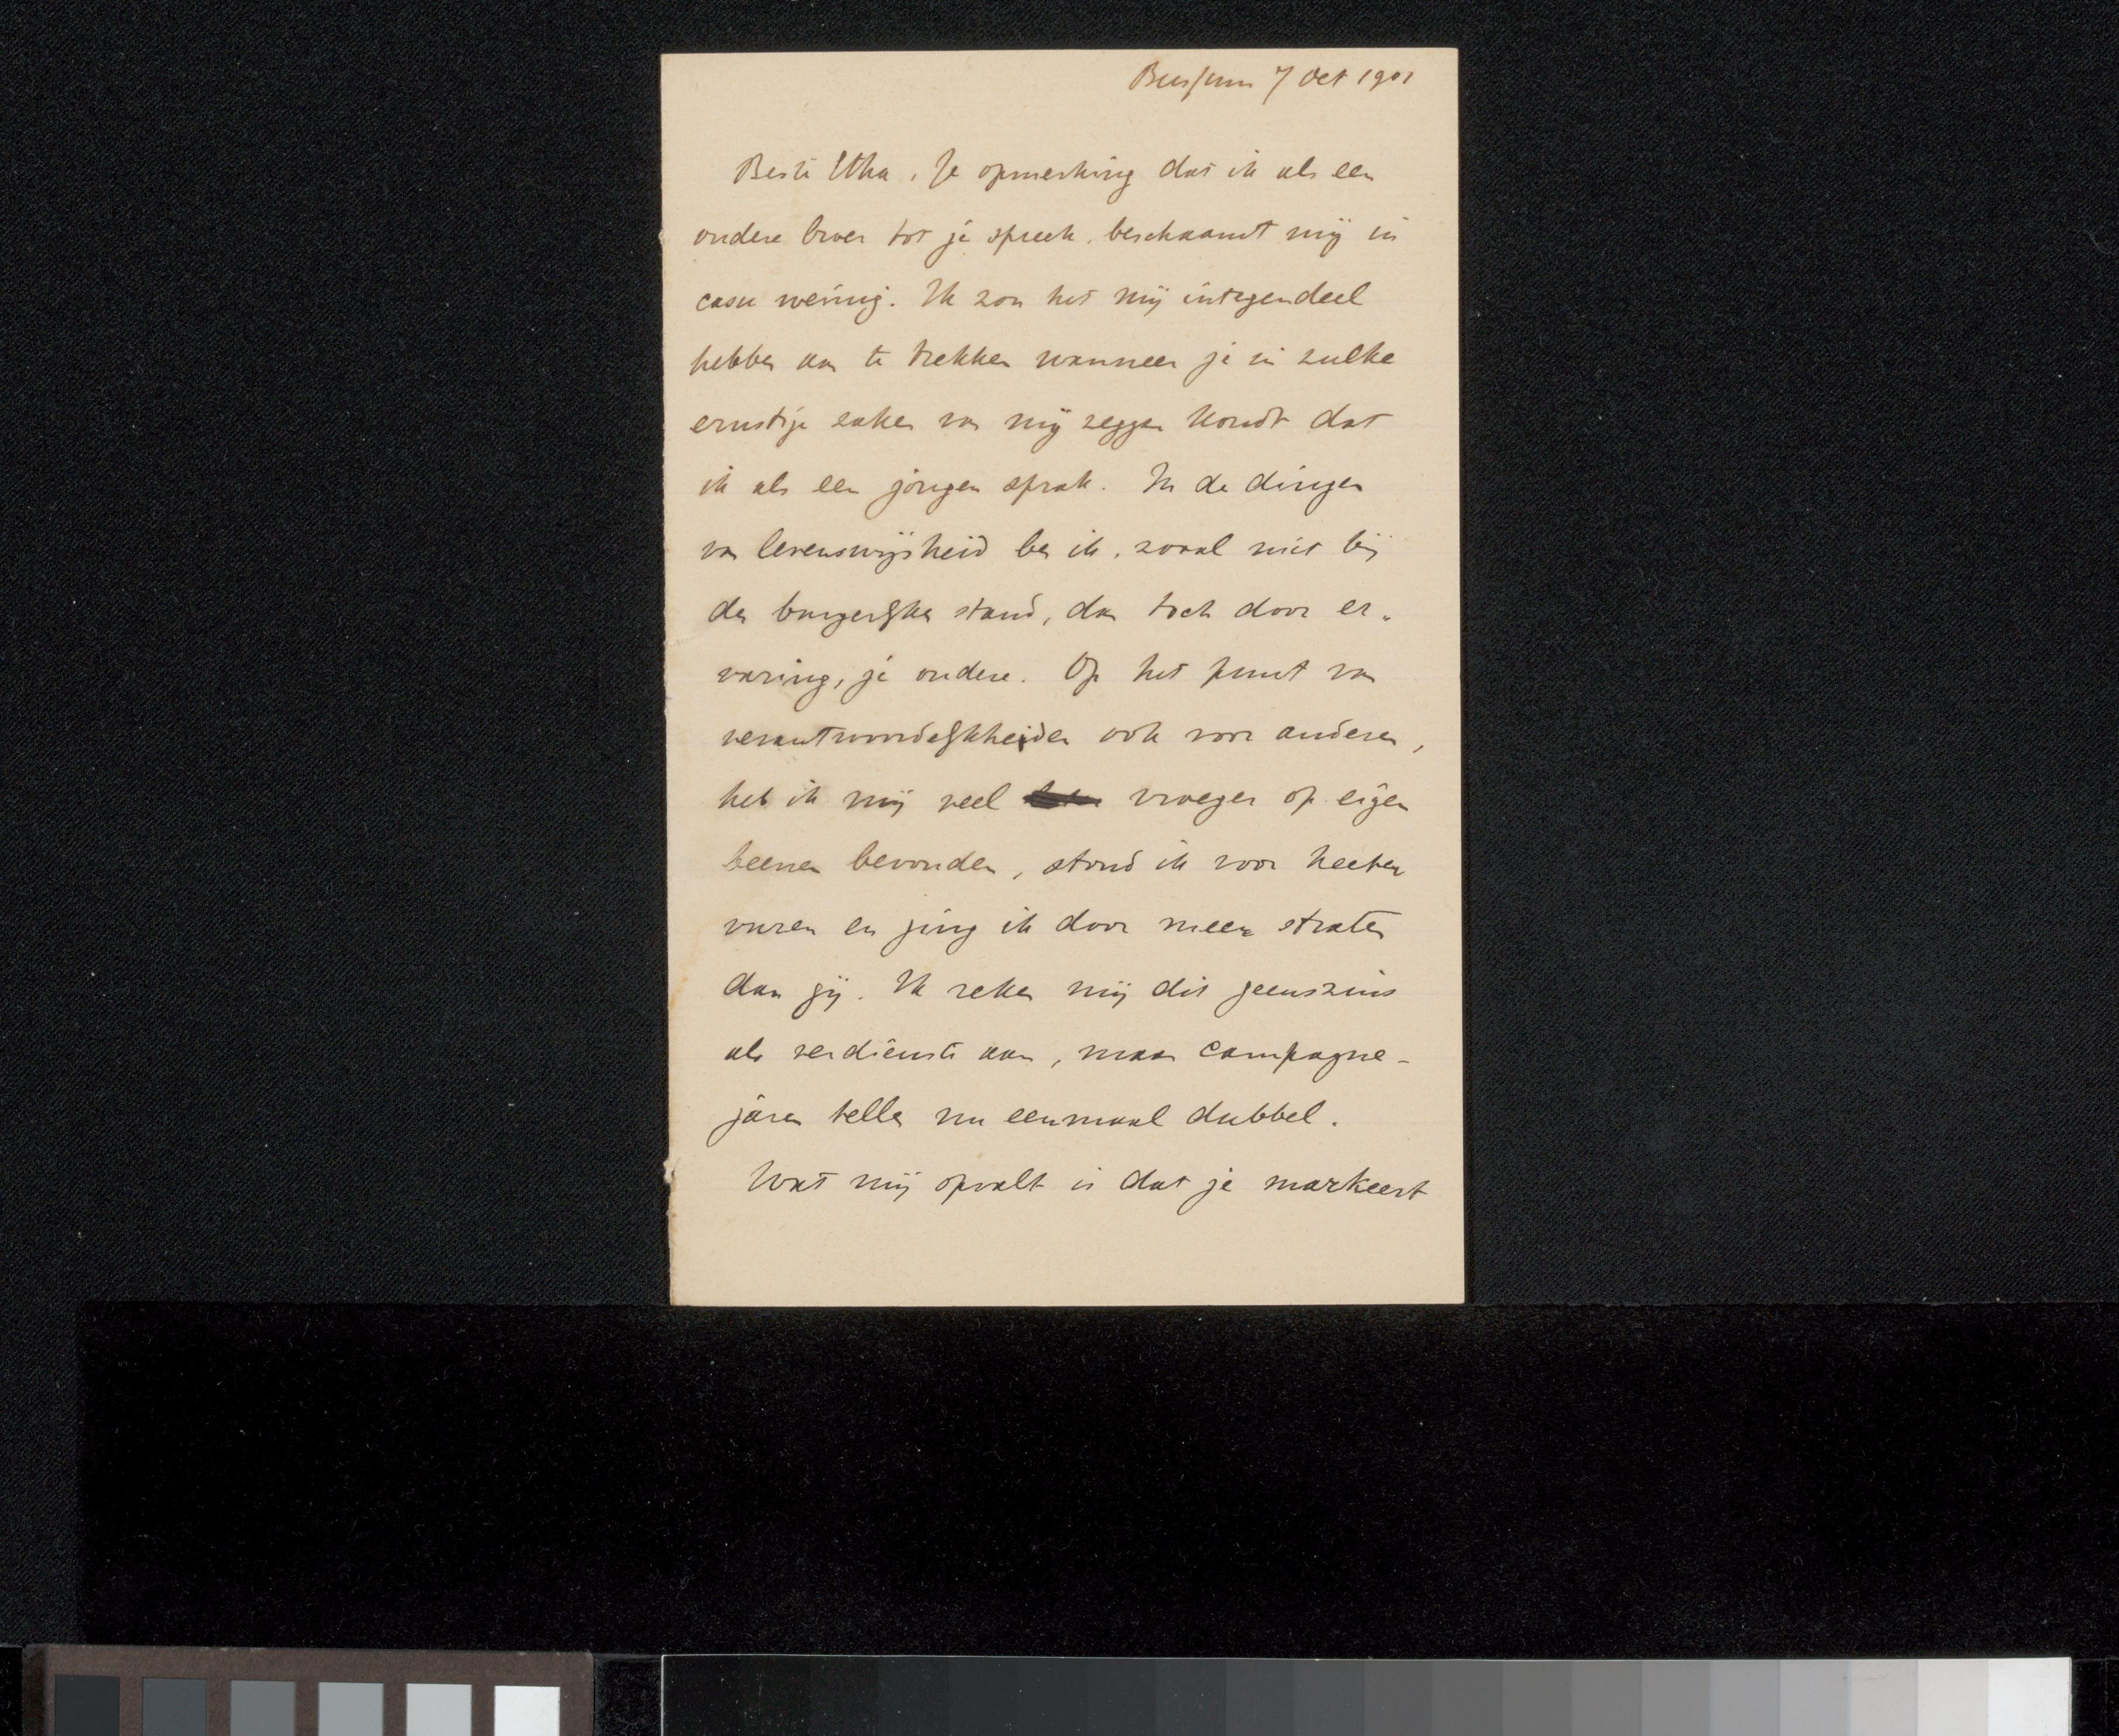 Bussum 7 Oct 1901
Beste Etha, Je opmerking dat ik als een
oudere broer tot je spreek, beschaamt mij in
casu weinig. Ik zou het mij integendeel
hebben aan te trekken wanneer je in zulke
ernstige zaken van mij zeggen kondt dat
ik als een jongen sprak. In de dingen
van levenswijsheid ben ik, zooal niet bij
den burgerlijken stand, dan toch door er-
varing, je oudere. Op het punt van
verantwoordelijkheiden ook voor anderen,
heb ik mij veel vroeger op eigen
beenen bevonden, stond ik voor heeter
vuren en ging ik door meer straten
dan jij. Ik reken mij dit geenszins
als verdienste aan, maar campagne-
jaren tellen nu eenmaal dubbel.
Wat mij opvalt is dat je markeert